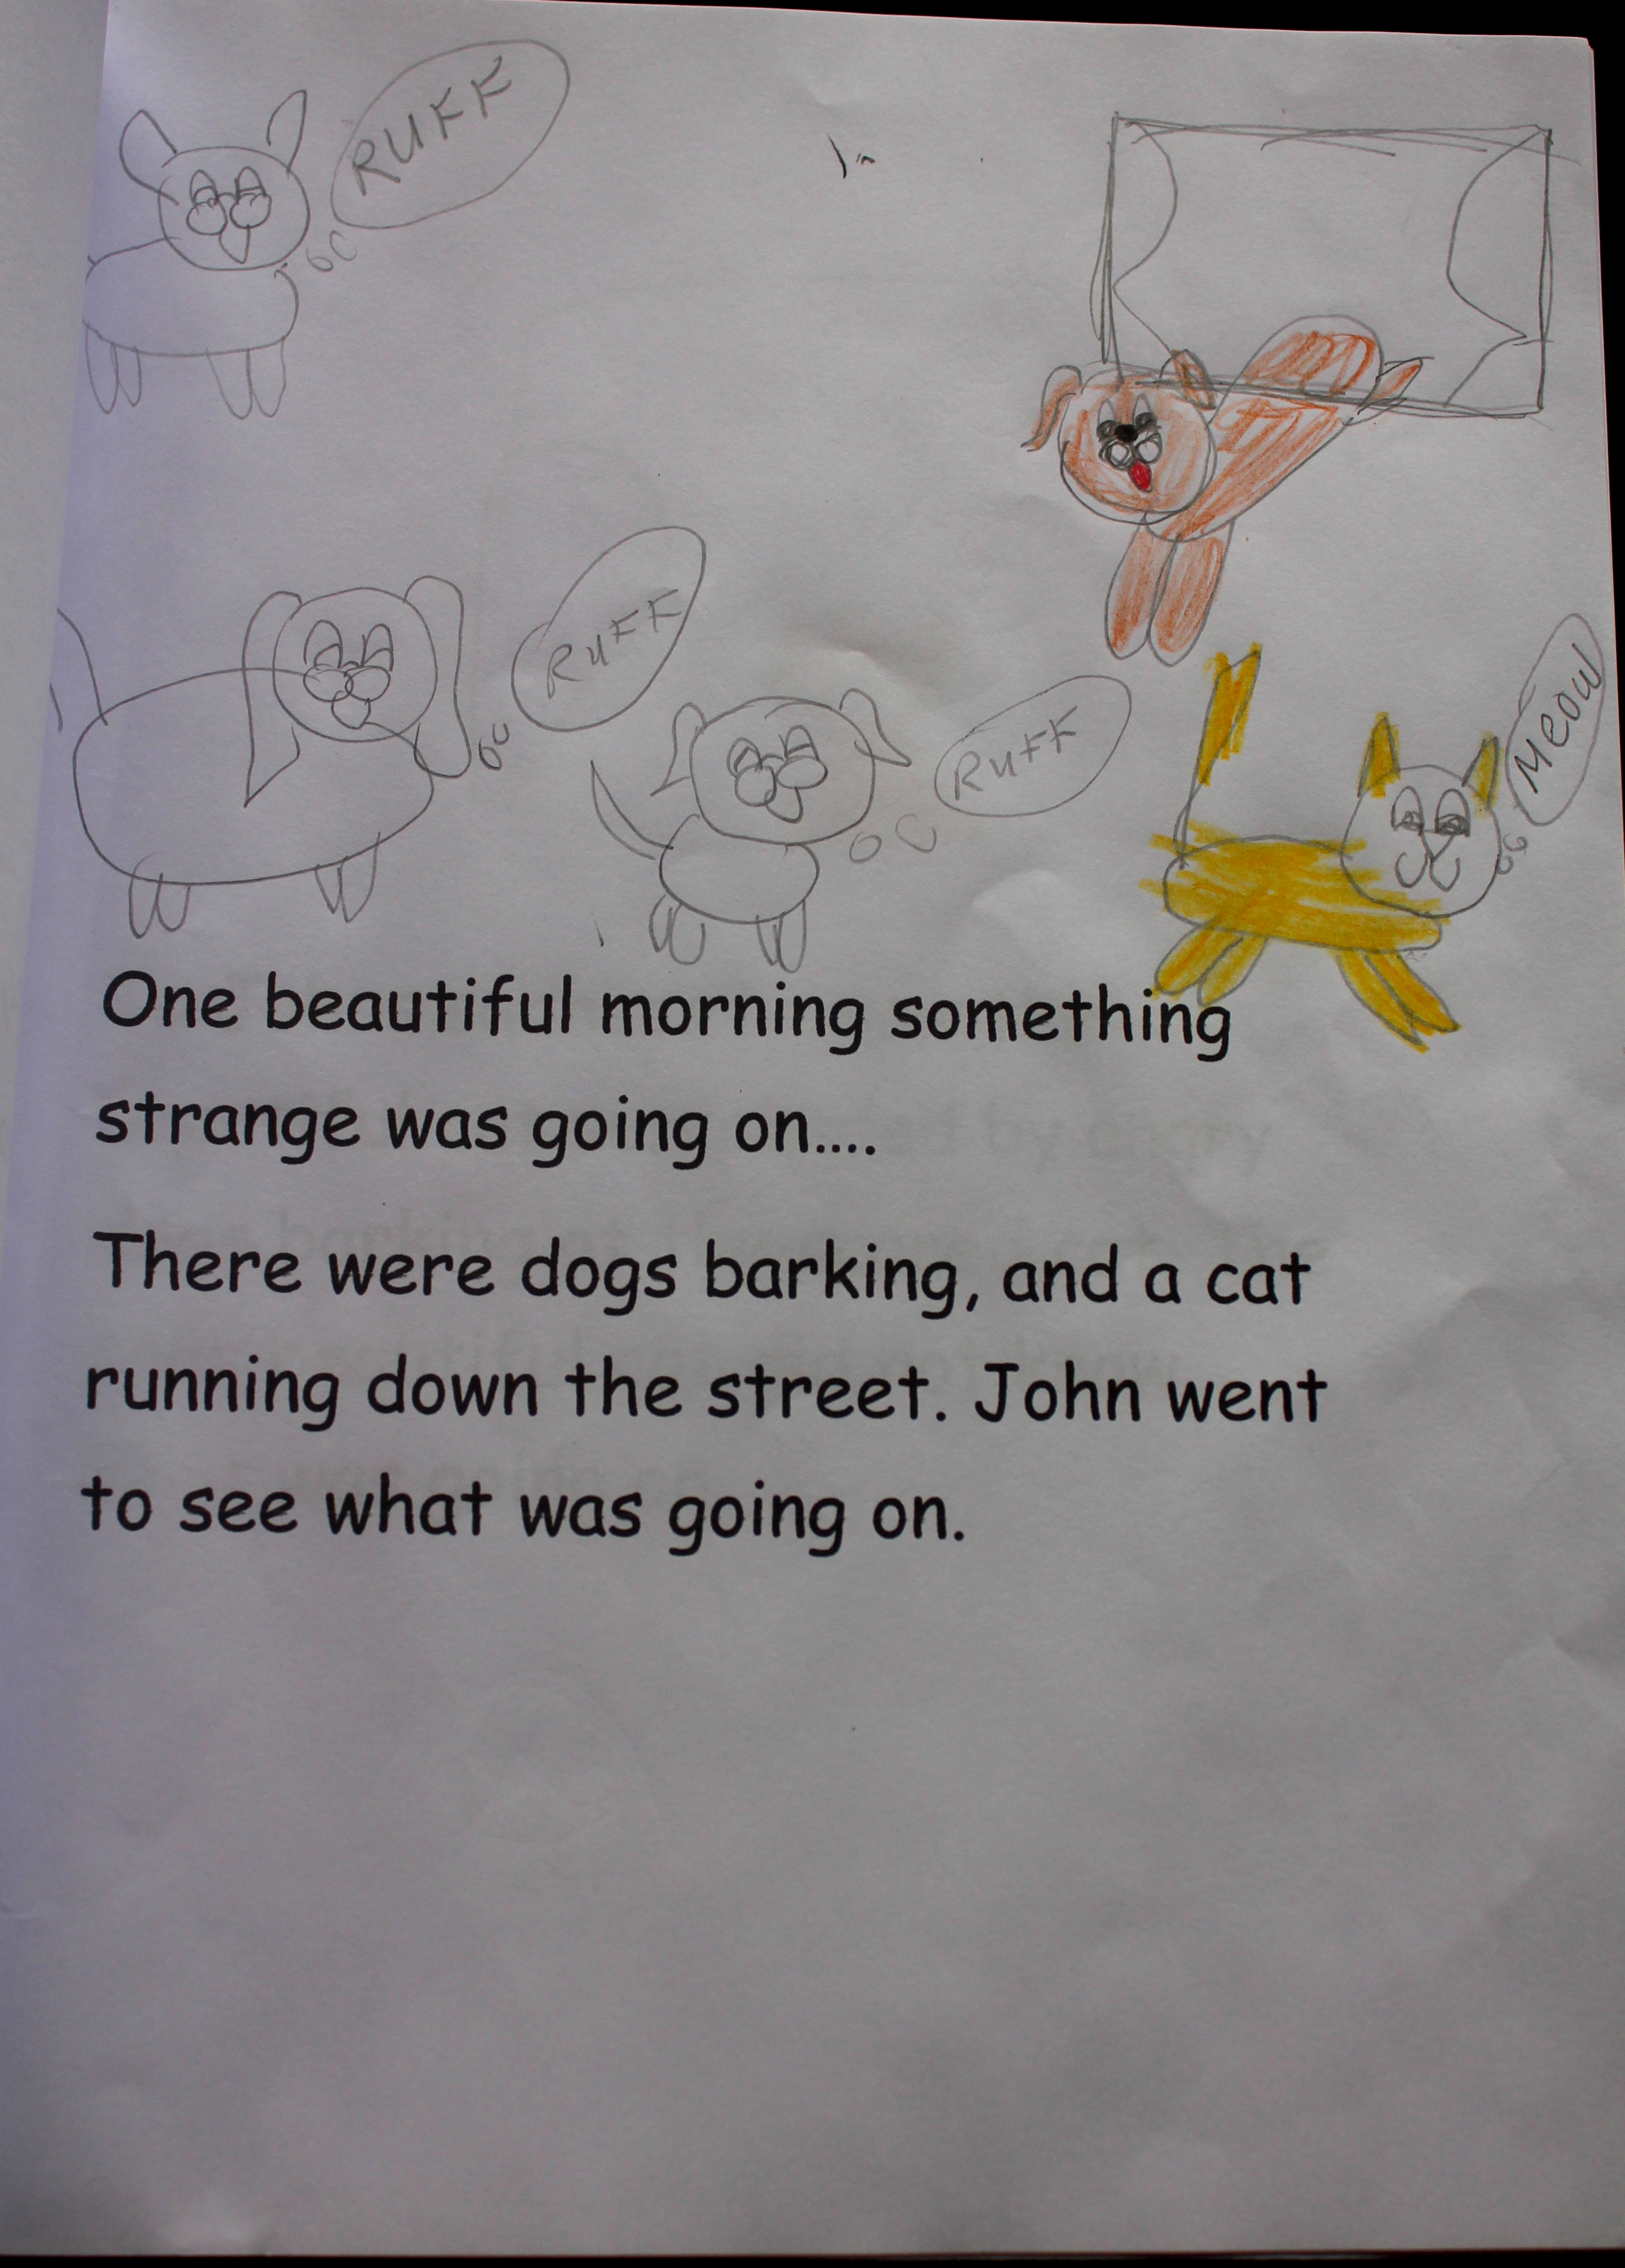 RUFF
RUFF
RUFF
MEOW
One beautiful morning something
strange was going on....
There were dogs barking, and a cat
running down the street. John went
to see what was going on.